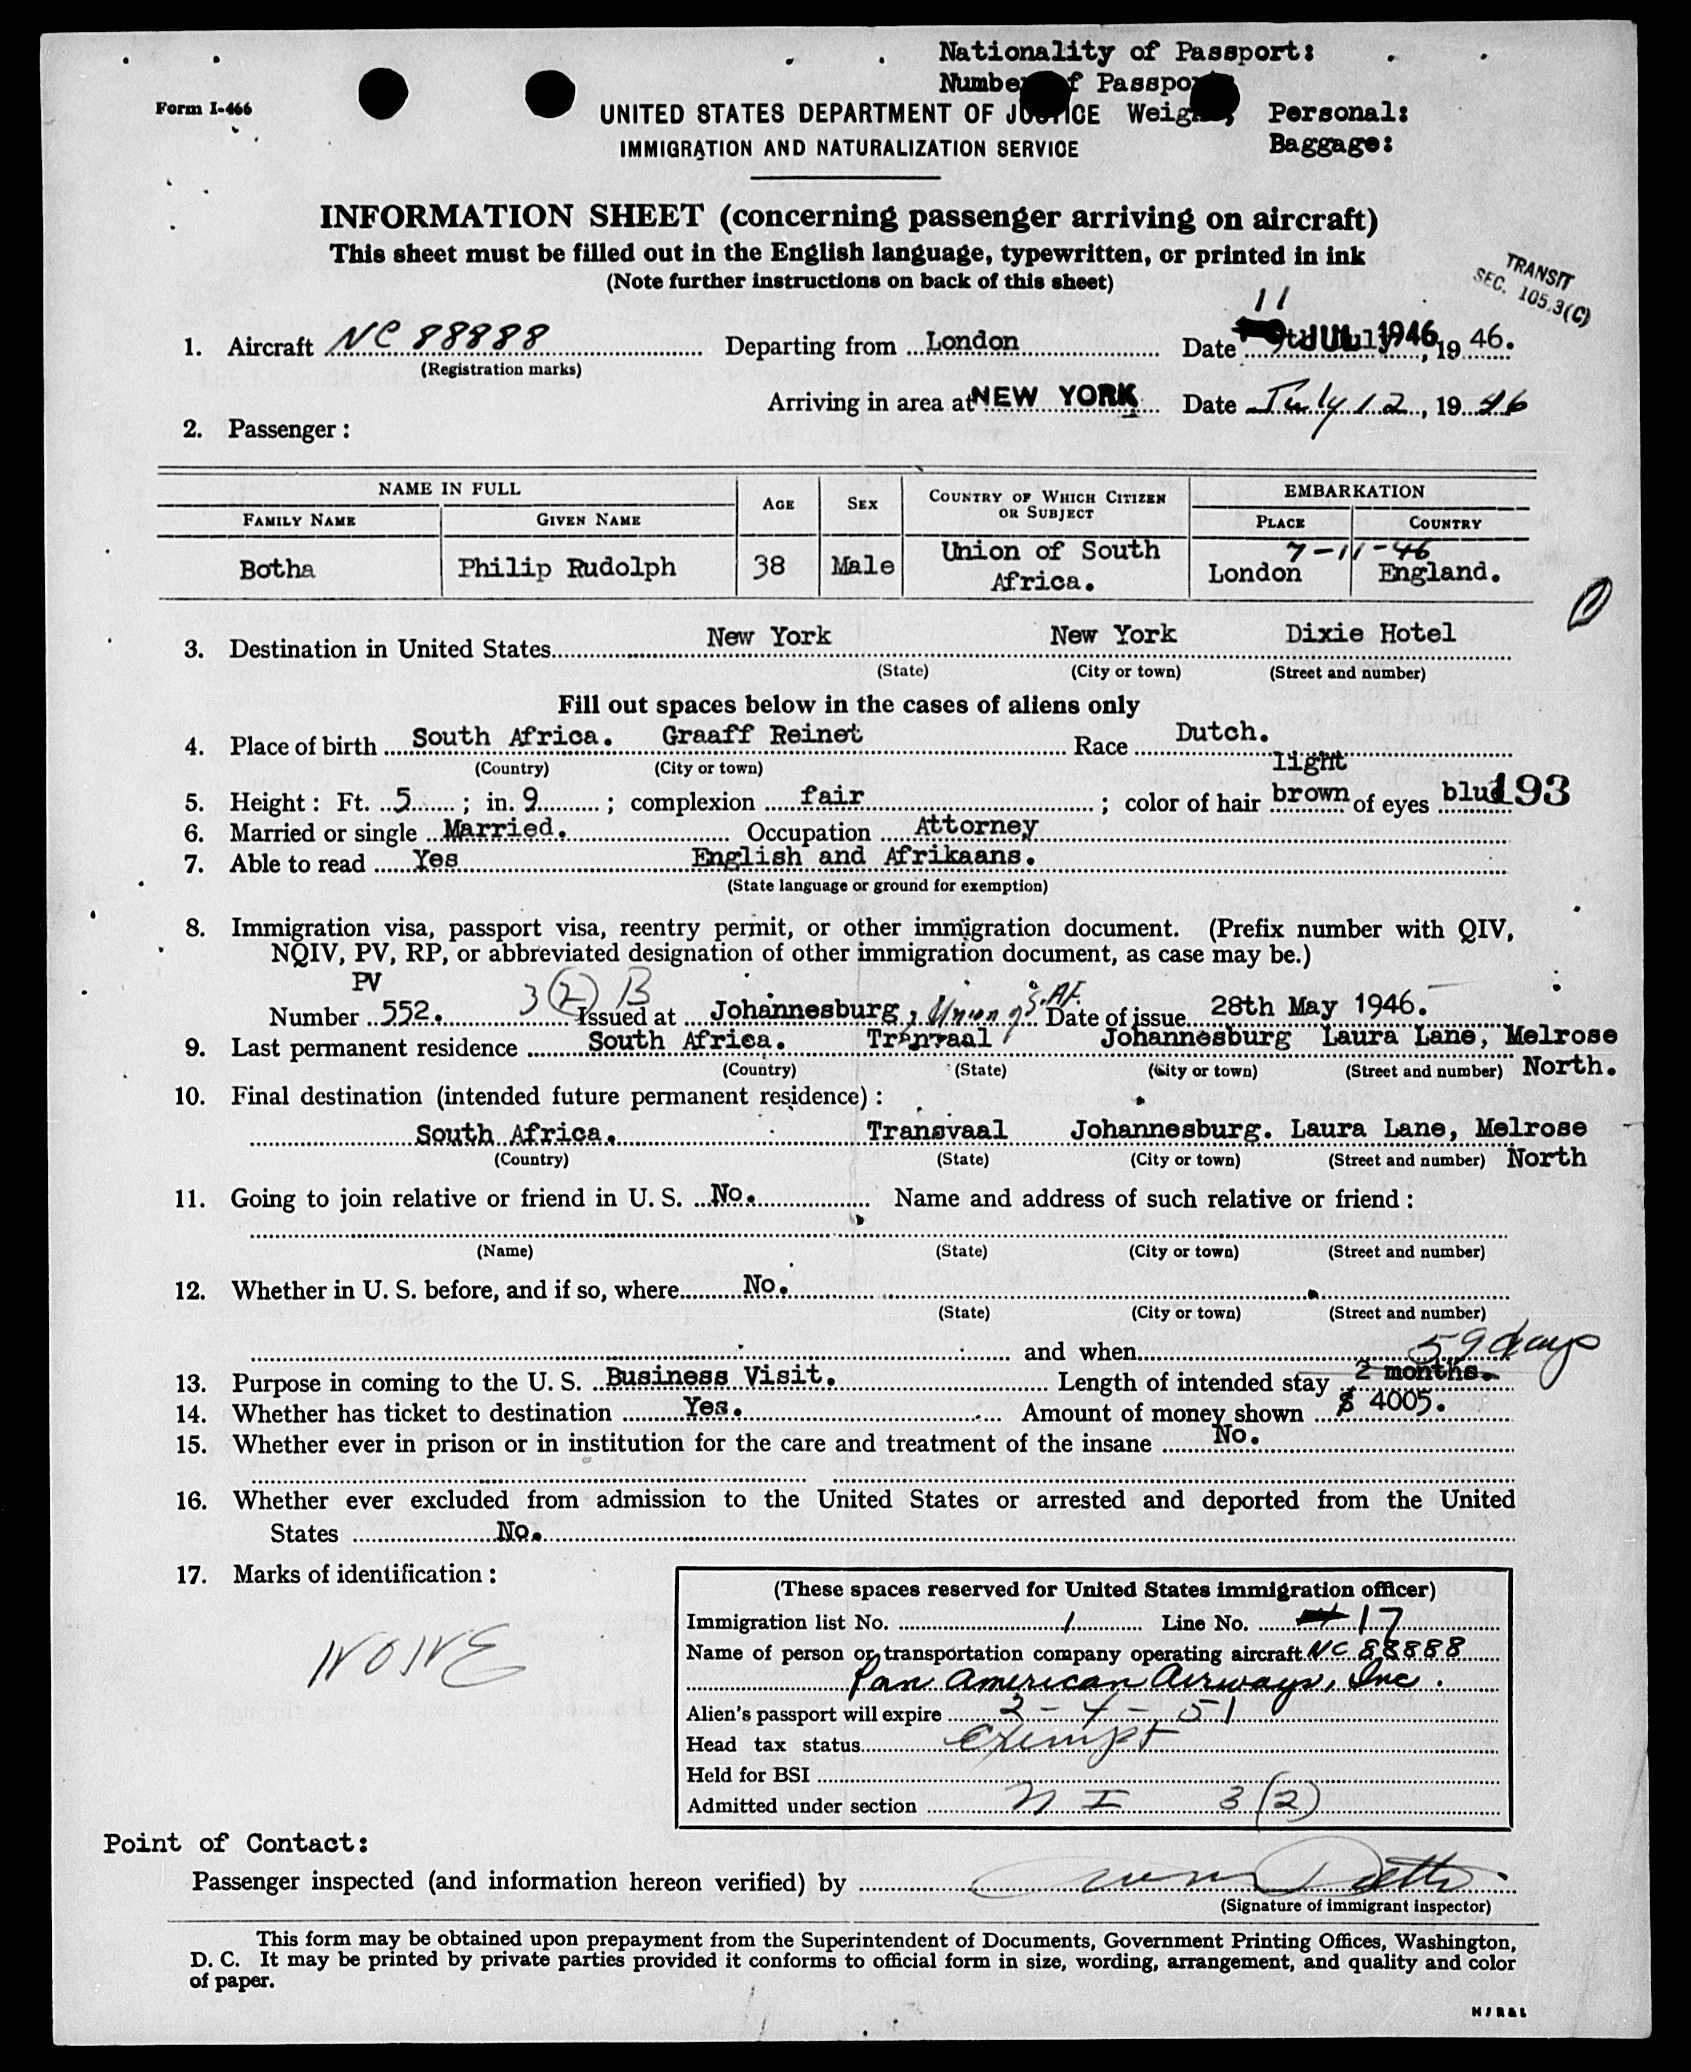 Nationality of Passport:
Number of Passport:
Form I-466
UNITED STATES DEPARTMENT OF JUSTICE Weight, Personal:
IMMIGRATION AND NATURALIZATION SERVICE Baggage:
INFORMATION SHEET (concerning passenger arriving on aircraft)
This sheet must be filled out in the English language, typewritten, or printed in ink
(Note further instructions on back of this sheet)
TRANSIT
SEC. 105.3(C)
11
1. Aircraft NC 88888 Departing from London Date JUL 1946, 19 46.
(Registration marks)
Arriving in area at NEW YORK Date July 12, 19 46
2. Passenger:
NAME IN FULL AGE SEX COUNTRY OF WHICH CITIZEN OR SUBJECT EMBARKATION
FAMILY NAME GIVEN NAME PLACE COUNTRY
7-11-46
Botha Philip Rudolph 38 Male Union of South Africa. London England.
3. Destination in United States New York New York Dixie Hotel
(State) (City or town) (Street and number)
Fill out spaces below in the cases of aliens only
4. Place of birth South Africa. Graaff Reinet Race Dutch.
(Country) (City or town)
light
5. Height: Ft. 5; in. 9; complexion fair; color of hair brown of eyes blue 193
6. Married or single Married. Occupation Attorney
7. Able to read Yes English and Afrikaans.
(State language or ground for exemption)
8. Immigration visa, passport visa, reentry permit, or other immigration document. (Prefix number with QIV,
NQIV, PV, RP, or abbreviated designation of other immigration document, as case may be.)
PV 3(2) B
Number 552. Issued at Johannesburg, Union of S. Af. Date of issue 28th May 1946.
9. Last permanent residence South Africa. Tranvaal Johannesburg Laura Lane, Melrose
(Country) (State) (City or town) (Street and number) North.
10. Final destination (intended future permanent residence):
South Africa. Transvaal Johannesburg. Laura Lane, Melrose
(Country) (State) (City or town) (Street and number) North
11. Going to join relative or friend in U. S. No. Name and address of such relative or friend:
(Name) (State) (City or town) (Street and number)
12. Whether in U. S. before, and if so, where No.
(State) (City or town) (Street and number)
and when 59 days
13. Purpose in coming to the U. S. Business Visit. Length of intended stay 2 months.
14. Whether has ticket to destination Yes. Amount of money shown $ 4005.
15. Whether ever in prison or in institution for the care and treatment of the insane No.
16. Whether ever excluded from admission to the United States or arrested and deported from the United
States No.
17. Marks of identification:
NONE
(These spaces reserved for United States immigration officer)
Immigration list No. 1 Line No. 17
Name of person or transportation company operating aircraft NC 88888
Pan American Airways, Inc.
Alien's passport will expire 2-4-51
Head tax status exempt
Held for BSI
Admitted under section N I 3(2)
Point of Contact:
Passenger inspected (and information hereon verified) by
(Signature of immigrant inspector)
This form may be obtained upon prepayment from the Superintendent of Documents, Government Printing Offices, Washington,
D. C. It may be printed by private parties provided it conforms to official form in size, wording, arrangement, and quality and color
of paper.